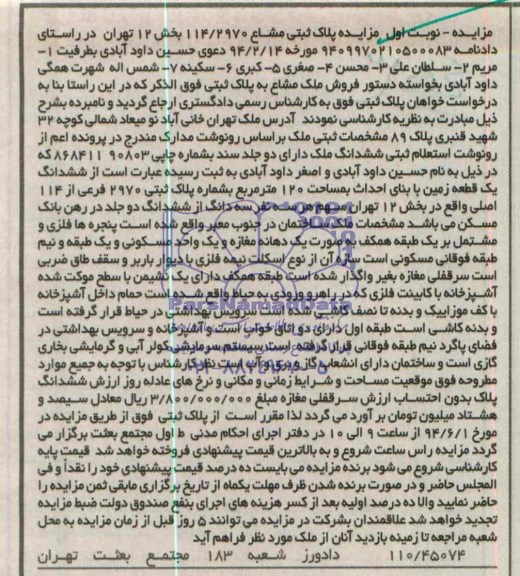 مزایده - نوبت اول مزایده پلاک ثبتی مشاع ۱۱۴/۲۹۷۰ بخش ۱۲ تهران در راستای
دادنامه ۹۴۰۹۹۷۰۲۱۰۵۰۰۰۸۳ مورخه ۹۴/۲/۱۴ دعوی حسین داود آبادی بطرفیت ۱-
مریم ۲- سلطان علی ۳- محسن ۴- صغری ۵- کبری ۶- سکینه ۷- شمس اله شهرت همگی
داود آبادی بخواسته دستور فروش ملک مشاع به پلاک ثبتی فوق الذکر که در این راستا بنا به
درخواست خواهان پلاک ثبتی فوق به کارشناس رسمی دادگستری ارجاع گردید و نامبرده بشرح
ذیل مبادرت به نظریه کارشناسی نمودند آدرس ملک تهران خانی آباد نو میعاد شمالی کوچه ۳۲
شهید قنبری پلاک ۸۹ مشخصات ثبتی ملک براساس رونوشت مدارک مندرج در پرونده اعم از
رونوشت استعلام ثبتی ششدانگ ملک دارای دو جلد سند بشماره چاپی ۹۰۸۰۳ ۸۶۸۴۱۱ که
در ذیل به نام حسین داود آبادی و اصغر داود آبادی به ثبت رسیده عبارت است از ششدانگ
یک قطعه زمین با بنای احداث بمساحت ۱۲۰ مترمربع بشماره پلاک ثبتی ۲۹۷۰ فرعی از ۱۱۴
اصلی واقع در بخش ۱۲ تهران سهم هر سه نفر سه دانگ از ششدانگ دو جلد در رهن بانک
مسکن می باشد مشخصات ملک ساختمان در جنوب معبر واقع شده است پنجره ها فلزی و
مشتمل بر یک طبقه همکف به صورت یک دهانه مغازه و یک واحد مسکونی و یک طبقه و نیم
طبقه فوقانی مسکونی است سازه آن از نوع اسکلت نیمه فلزی با دیوار باربر و سقف طاق ضربی
است سرقفلی مغازه بغیر واگذار شده است طبقه همکف دارای یک نشیمن با سطح موکت شده
آشپزخانه با کابینت فلزی که در راهرو ورودی به حیاط واقع شده است حمام داخل آشپزخانه
با کف موزاییک و بدنه تا نصف کاشی شده است سرویس بهداشتی در حیاط قرار گرفته است
و بدنه کاشی است طبقه اول دارای دو اتاق خواب است و آشپزخانه و سرویس بهداشتی در
فضای پاگرد نیم طبقه فوقانی قرار گرفته است سیستم سرمایشی کولر آبی و گرمایشی بخاری
گازی است و ساختمان دارای انشعاب گاز و برق و آب است نظر کارشناس با توجه به جمیع موارد
مطروحه فوق موقعیت مساحت و شرایط زمانی و مکانی و نرخ های عادله روز ارزش ششدانگ
پلاک بدون احتساب ارزش سرقفلی مغازه مبلغ ۳/۸۰۰/۰۰۰/۰۰۰ ریال معادل سیصد و
هشتاد میلیون تومان بر آورد می گردد لذا مقرر است از پلاک ثبتی فوق از طریق مزایده در
مورخ ۹۴/۶/۱ از ساعت ۹ الی ۱۰ در دفتر اجرای احکام مدنی ط اول مجتمع بعثت برگزار می
گردد مزایده راس ساعت شروع و به بالاترین قیمت پیشنهادی فروخته خواهد شد قیمت پایه
کارشناسی شروع می شود برنده مزایده می بایست ده درصد قیمت پیشنهادی خود را نقداً و فی
المجلس حاضر و در صورت برنده شدن ظرف مهلت یکماه از تاریخ برگزاری مابقی ثمن مزایده را
حاضر نمایید والا ده درصد اولیه بعد از کسر هزینه های اجرای بنفع صندوق دولت ضبط مزایده
تجدید خواهد شد علاقمندان بشرکت در مزایده می توانند ۵ روز قبل از زمان مزایده به محل
شعبه مراجعه تا زمینه بازدید آنان از ملک مورد نظر فراهم آید
۱۱۰/۴۵۰۷۴ دادورز شعبه ۱۸۳ مجتمع بعثت تهران
ParsNamadData